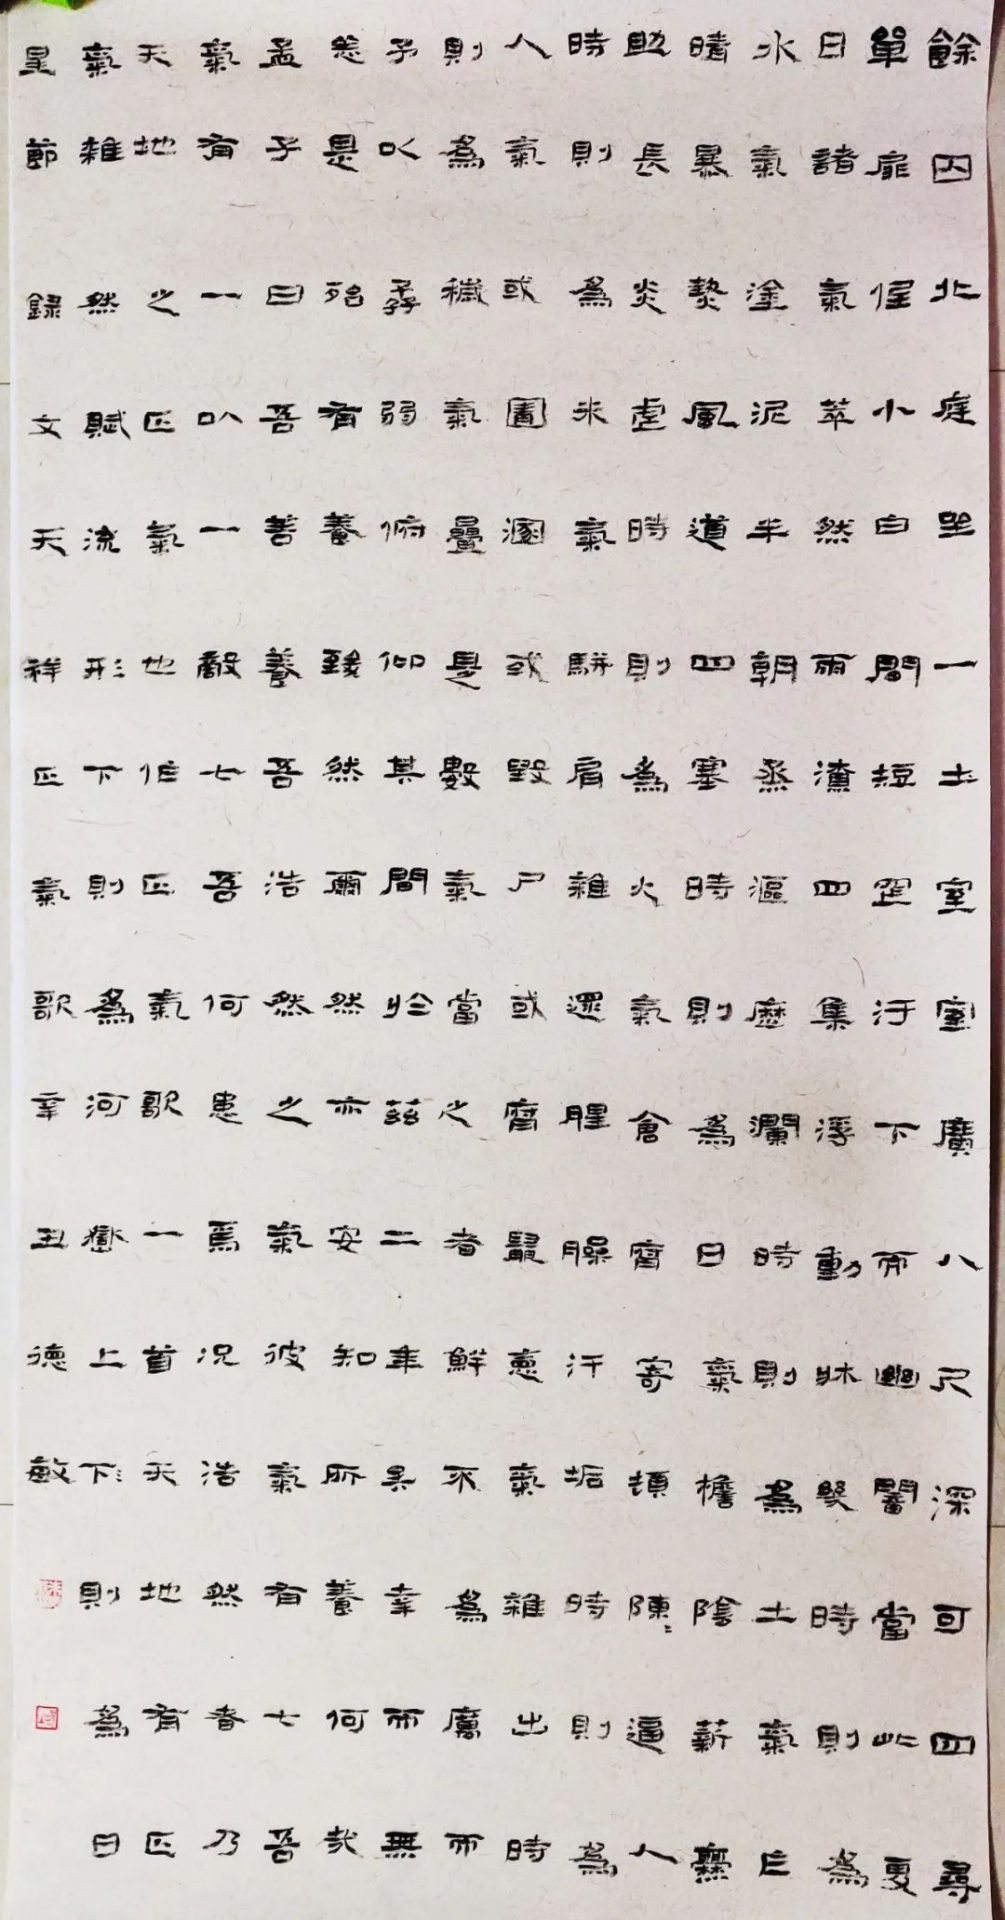 餘囚北庭坐一土室室廣八尺深可四尋
單扉低小白間短窄汙下而幽闇當此夏
日諸氣萃然雨潦四集浮動牀几時則為
水氣塗泥半朝蒸漚歷瀾時則為土氣乍
晴暴熱風道四塞時則為日氣檐陰薪爨
助長炎虐時則為火氣倉腐寄頓陳〻逼人
時則為米氣駢肩雜遝腥臊汗垢時則為
人氣或圊溷或毀尸或腐鼠惡氣雜出時
則為穢氣疊是數氣當之者鮮不為厲而
予以孱弱俯仰其間於茲二年矣幸而無
恙是殆有養致然爾然亦安知所養何哉
孟子曰吾善養吾浩然之氣彼氣有七吾
氣有一以一敵七吾何患焉況浩然者乃
天地之正氣也作正氣歌一首天地有正
氣雜然賦流形下則為河嶽上下則為日
星節錄文天祥正氣歌辛丑德敏